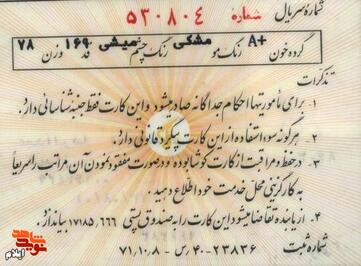 شماره سریال
شماره ۵۳۰۸۰۴
گروه خون A+ رنگ مو مشکی رنگ چشم میشی قد ۱۶۹ وزن ۷۸
تذکرات
۱ - برای مأموریتها احکام جداگانه صادر میشود و این کارت فقط جنبه شناسائی دارد.
۲ - هرگونه سوء استفاده از این کارت پیگرد قانونی دارد.
۳ - در حفظ و مراقبت از کارت کوشا بوده و در صورت مفقود نمودن آن مراتب را سریعاً
به کارگزینی محل خدمت خود اطلاع دهید.
۴ - از یابنده تقاضا میشود این کارت را به صندوق پستی ۱۷۱۸۵،۶۶۶ بیاندازد.
شماره ثبت ۲۳۸۳۶-۴۰۰-س ۷۱،۱۰،۸
نوید شاهد
ایلام